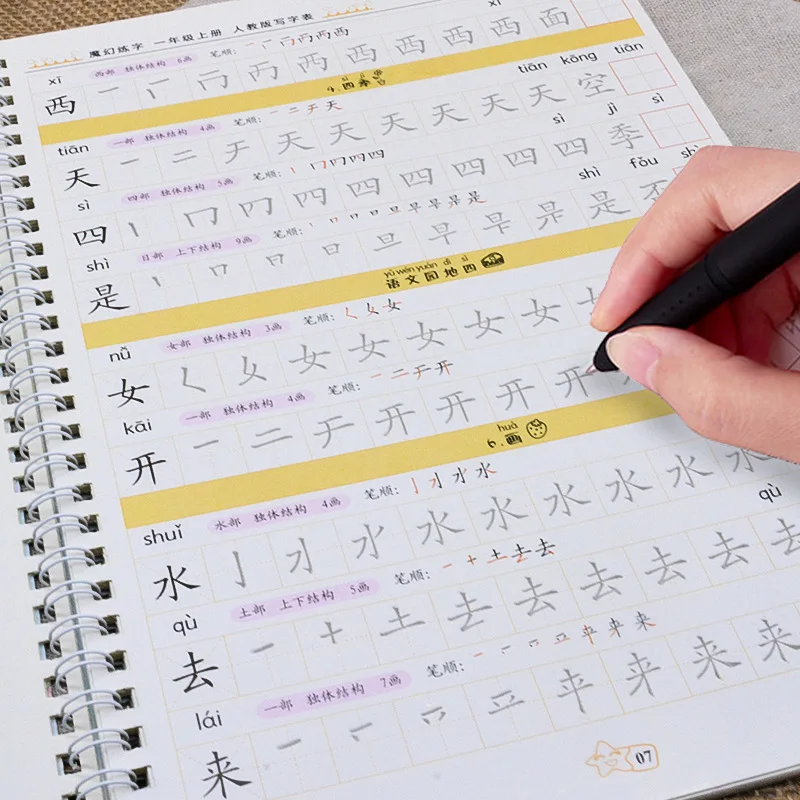 魔幻练字 一年级上册 人教版写字表
xī xī
西部 独体结构 6画 笔顺: 一 𠃍 冂 丙 两 西
西 一 西 西 西 西 西 西 面
9.四季
sì jì
tiān tiān kōng tiān
一部 独体结构 4画 笔顺: 一 二 チ 天
天 一 二 チ 天 天 天 天 天 天 空
sì sì jì sì
四部 独体结构 5画 笔顺: 丨 冂 四 四 四
四 丨 冂 四 四 四 四 四 四 季
shì shì fǒu shì
日部 上下结构 9画 笔顺: 丨 冂 日 日 旦 早 早 是 是
是 丨 冂 日 日 旦 早 早 是 是 否
yǔ wén yuán dì sì
语文园地四
nǚ
女部 独体结构 3画 笔顺: く 女 女
女 く 女 女 女 女 女 女
kāi
一部 独体结构 4画 笔顺: 一 二 チ 开
开 一 二 チ 开 开 开 开
huà
6.画
shuǐ
水部 独体结构 4画 笔顺: 亅 水 水 水
水 亅 水 水 水 水 水 水 水 水
qù qù
土部 上下结构 5画 笔顺: 一 十 土 去 去
去 一 十 土 去 去 去 去 去 去
lái
一部 独体结构 7画 笔顺: 一 平 来 来
来 一 平 来 来 来
07